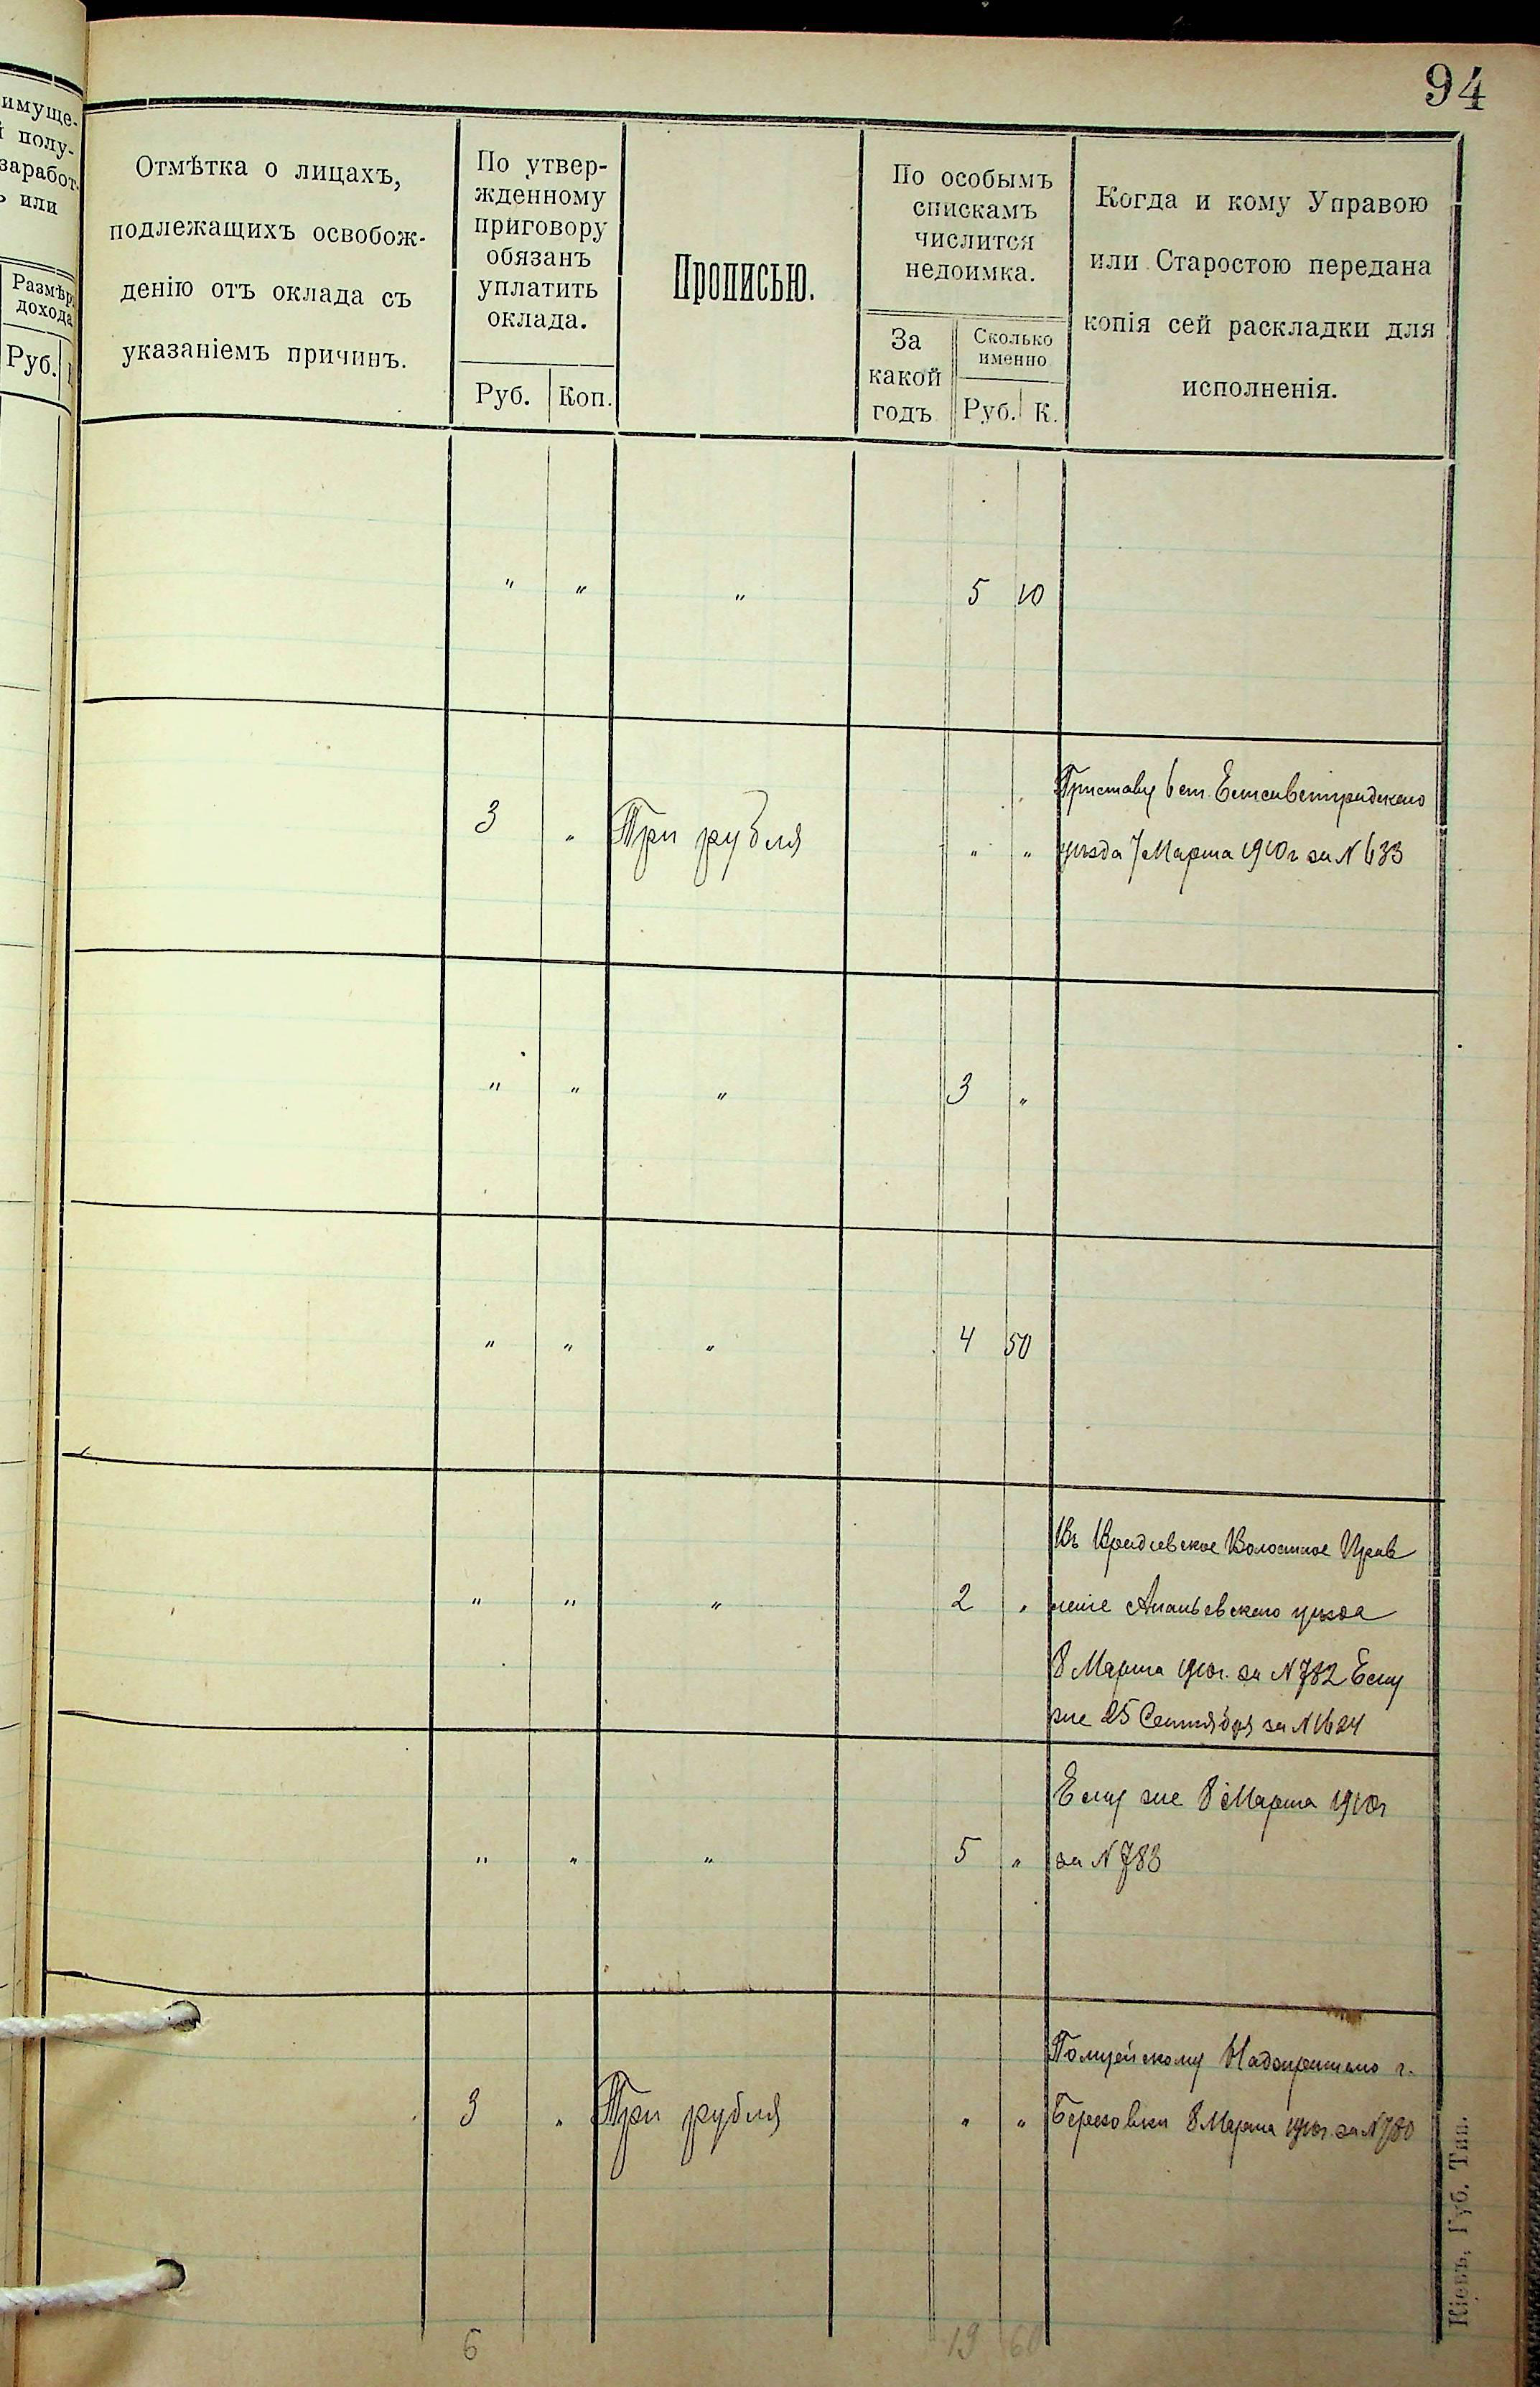 94
имуще-
й полу-
заработ-
ь или
Размѣр
дохода
Руб.
Отмѣтка о лицахъ,
подлежащихъ освобож-
денію отъ оклада съ
указаніемъ причинъ.
По утвер-
жденному
приговору
обязанъ
уплатить
оклада.
Руб. Коп.
Прописью.
По особымъ
спискамъ
числится
недоимка.
За
какой
годъ
Сколько
именно
Руб. К.
Когда и кому Управою
или Старостою передана
копія сей раскладки для
исполненія.
" " " 5 10
Приставу 6 ст. Елисаветградскаго
3 " Три рубля " " уѣзда 7 Марта 1910 г за N 633
" " " 3 "
" " " 4 50
Въ Волостное Прав
" " " 2 " леніе Ананьевскаго уѣзда
8 Марта 1910 г. за N 782 Ему
же 25 Сентября за N 1624
Ему же 8 Марта 1910 г
" " " 5 " за N 783
Полицейскому Надзирателю г.
3 " Три рубля " " Березовки 8 Марта 1910 г. за N 780
6 19 60
Кіевъ, Губ. Тип.